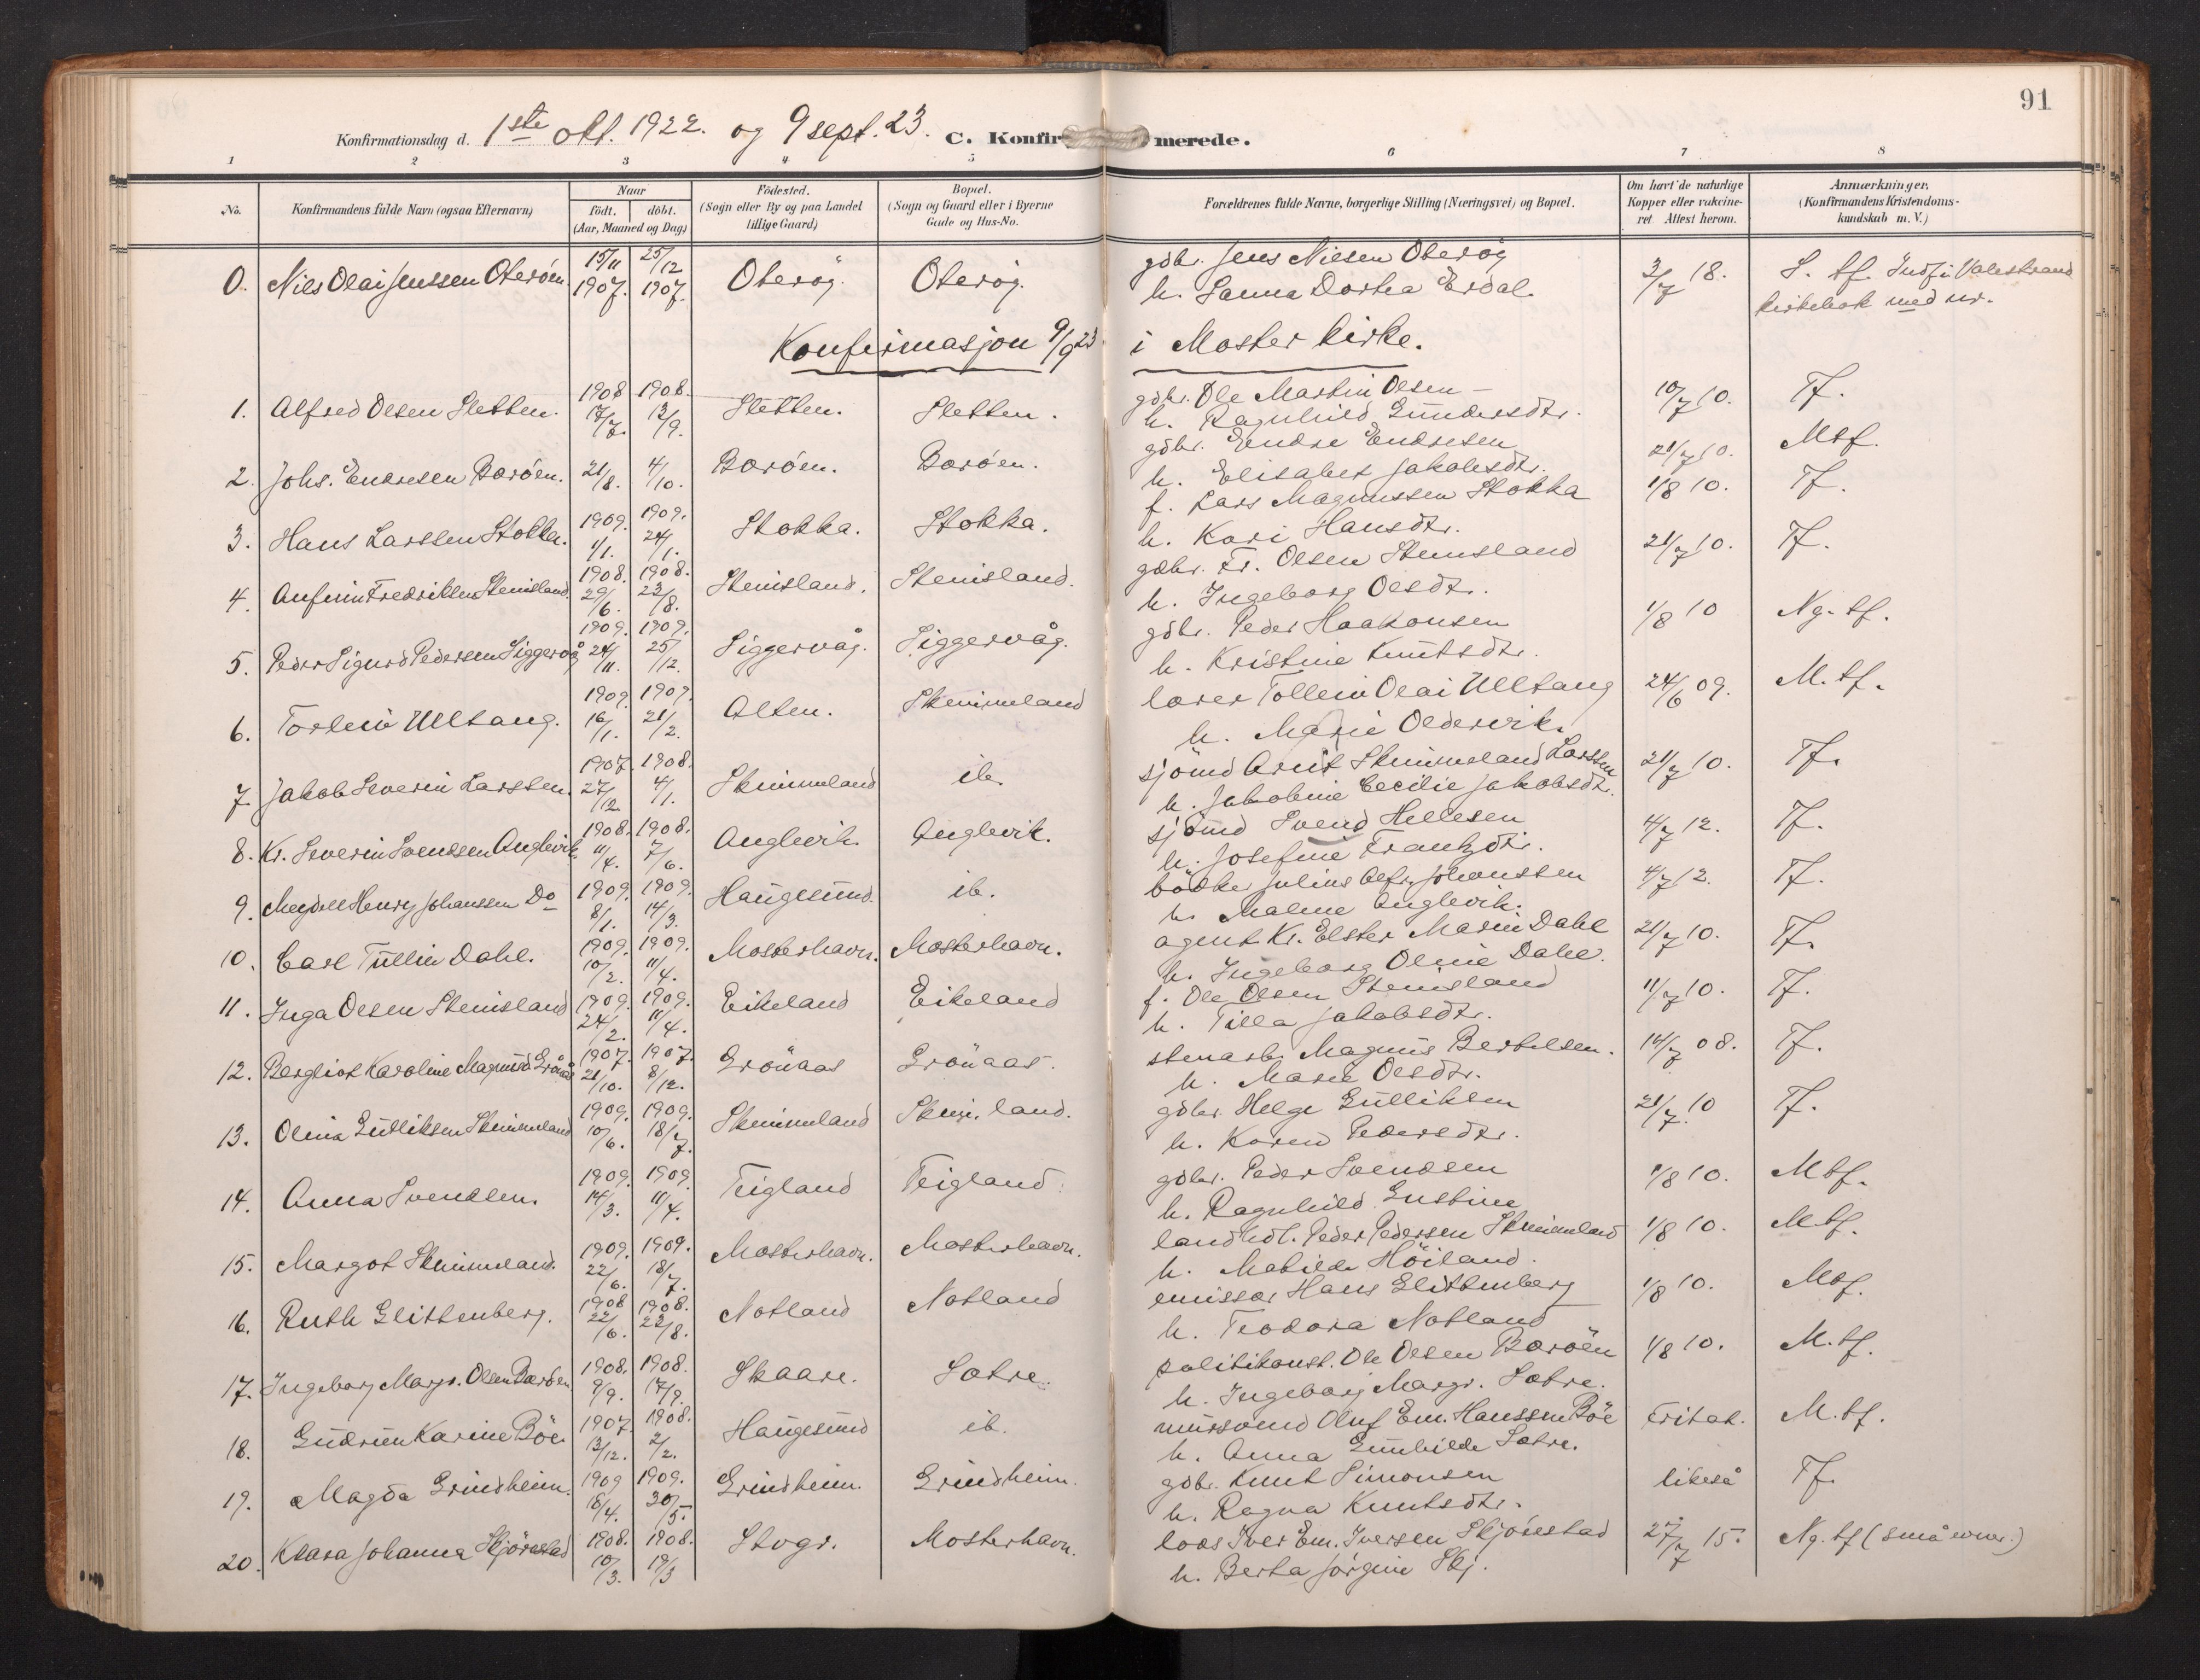 91
Konfirmationsdag d. 1ste okt. 1922. og 9 sept. 23. C. Konfirmerede.
1 2 3 4 5 6 7 8
No. Konfirmandens fulde Navn (ogsaa Efternavn) Naar födt. döbt. (Aar, Maaned og Dag) Födested. (Sogn eller By og paa Landet tillige Gaard) Bopæl. (Sogn og Gaard eller i Byerne Gade og Hus-No. Forældrenes fulde Navne, borgerlige Stilling (Næringsvei) og Bopæl. Om havt de naturlige Kopper eller vakcineret. Attest herom. Anmærkninger. (Konfirmandens Kristendomskundskab m. V.)
0. Nils Olai Jenssen Oterøen 15/11 1907. 25/12 1907. Oterøy. Oterøy. gdbr. Jens Nilsen Oterøy 3/7 18. S. tf. Indf i Valestrand
h. Lanna Dortea Erdal. kirkebok med nr.
Konfirmasjon 9/9 23 i Moster kirke.
1. Alfred Olsen Sletten. 1908 17/7. 1908. 13/9. Sletten. Sletten. gdbr. Ole Martin Olsen – 10/7 10. Tf.
h. Ragnhild Gundersdtr.
2. Johs. Endresen Barøen. 21/8. 4/10. Barøen. Barøen. gdbr. Endre Endresen 21/7 10. Mtf.
h. Elisabet Jakobsdtr.
3. Hans Larssen Stokka. 1909. 1/1. 1909. 24/1. Stokka. Stokka. f. Lars Magnussen Stokka 1/8 10. Tf.
h. Kari Hansdtr.
4. Anfinn Fredriksen Stensland. 1908. 29/6. 1908. 23/8. Stensland. Stensland. gdbr. Fr. Olsen Stensland 21/7 10. Tf.
h. Ingeborg Olsdtr.
5. Peder Sigurd Pedersen Siggervåg 1909. 24/11. 1909. 25/12. Siggervåg. Siggervåg. gdbr. Peder Haakonsen 1/8 10 Ng. tf.
h. Kristine Knutsdtr.
6. Torlein Ulltang. 1909. 16/1. 1909. 21/2. Alten. Skimmeland lærer Tollein Olai Ulltang 24/6 09. M. tf.
h. Marie Oldervik.
7. Jakob Severin Larssen. 1907. 27/12. 1908. 4/1. Skimmeland ib. sjömd Arnt Skimmeland Larssen 21/7 10. Tf.
h. Jakobine Cecilie Jakobsdtr.
8. Kr. Severin Svendsen Anglevik 1908. 11/4. 1908. 7/6. Anglevik Anglevik. sjömd Svend Hellesen 4/7 12. Tf.
h. Josefine Frantzdtr.
9. Meydell Henry Johanssen Do 1909. 8/1. 1909. 14/3. Haugesund. ib. bödker Julius Alfr. Johanssen 4/7 12. Tf.
h. Malene Anglevik.
10. Carl Tullin Dahl. 1909. 10/2. 1909. 11/4. Mosterhavn. Mosterhavn. agent Kr. Elster Marin Dahl 21/7 10. Tf.
h. Ingeborg Oline Dahl.
11. Inga Olsen Stensland 1909. 24/2. 1909. 11/4. Eikeland Eikeland f. Ole Olsen Stensland 11/7 10. Tf.
h. Tilla Jakobsdtr.
12. Bergliot Karoline Magnusd Grönaas 1907. 21/10. 1907. 8/12. Grönaas Grönaas. stenarb. Magnus Bertelsen. 14/7 08. Tf.
h. Marie Olsdtr.
13. Olina Gulliksen Skimmeland 1909. 10/6. 1909. 18/7. Skimmeland Skim. land. gdbr. Helge Gulliksen 21/7. 10 Tf.
h. Karen Pedersdtr.
14. Anna Svendsen. 1909. 14/3. 1909. 11/4. Teigland Teigland. gdbr. Peder Svendsen 1/8 10. Mtf.
h. Ragnhild Gustine
15. Margot Skimmeland. 1909. 22/6. 1909. 18/7. Mosterhavn. Mosterhavn. landhdl. Peder Pedersen Skimmeland 1/8 10. M. tf.
h. Matilde Höiland.
16. Ruth Glittenberg. 1908 22/6. 1908. 23/8. Notland Notland emissær Hans Glittenberg 1/8 10. Mtf.
h. Teodora Notland
17. Ingeborg Margr. Olsen Barøen 1908. 9/9. 1908. 17/9. Skaare. Sætre. politikonst. Ole Olsen Barøen 1/8 10. M. tf.
h. Ingeborg Margr. Sætre.
18. Gudrun Karine Böe. 1907. 13/12. 1908. 2/2. Haugesund ib. murssvend Oluf Em. Hanssen Böe Fritat. M. tf.
h. Anna Gunhilde Sætre.
19. Magda Grindheim. 1909 18/4. 1909. 30/5. Grindheim. Grindheim. gdbr. Knut Simonsen likeså Tf.
h. Ragna Knutsdtr.
20. Klara Johanna Skjörestad 1908. 10/3. 1908. 19/3 Stvgr. Mosterhavn. lods Iver Em. Iversen Skjörestad 27/7 15. Ng. tf (små evner.)
h. Berta Jörgine Skj.